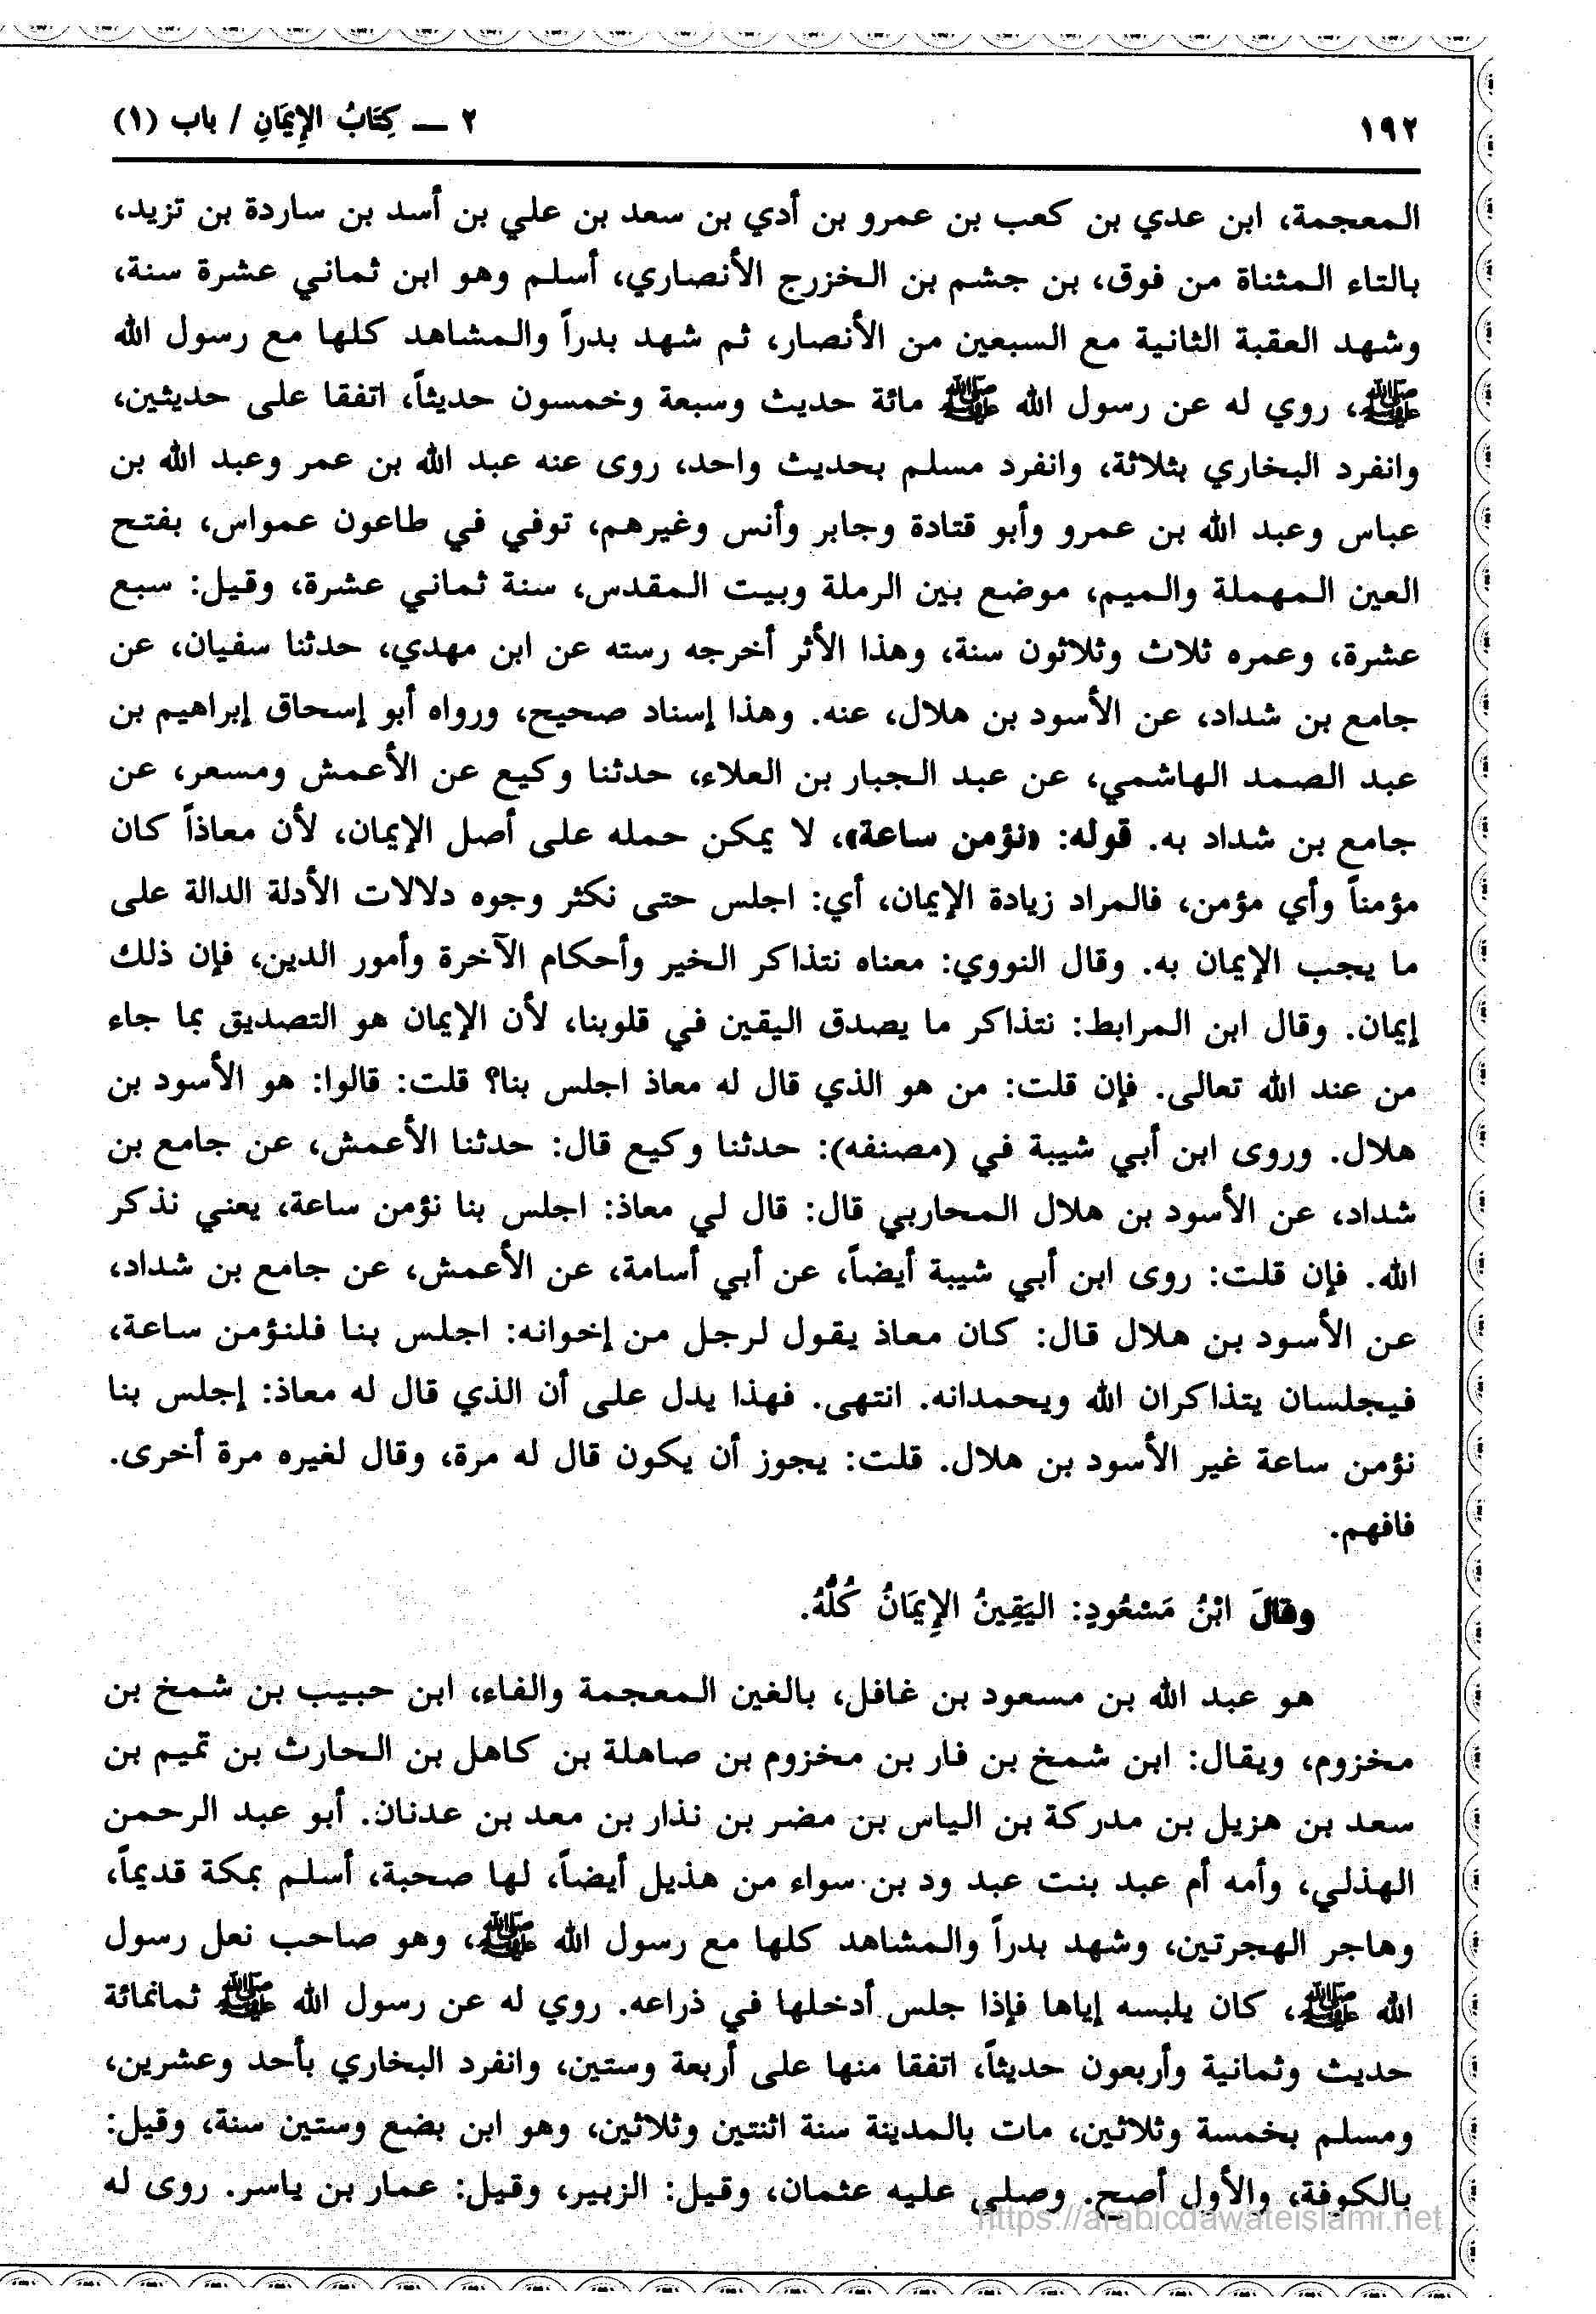 ١٩٢ ٢ ـــ كِتَابُ الإِيمَانِ / باب (١)
المعجمة، ابن عدي بن كعب بن عمرو بن أدي بن سعد بن علي بن أسد بن ساردة بن تزيد،
بالتاء المثناة من فوق، بن جشم بن الخزرج الأنصاري، أسلم وهو ابن ثماني عشرة سنة،
وشهد العقبة الثانية مع السبعين من الأنصار، ثم شهد بدراً والمشاهد كلها مع رسول الله
ﷺ، روي له عن رسول الله ﷺ مائة حديث وسبعة وخمسون حديثاً، اتفقا على حديثين،
وانفرد البخاري بثلاثة، وانفرد مسلم بحديث واحد، روى عنه عبد الله بن عمر وعبد الله بن
عباس وعبد الله بن عمرو وأبو قتادة وجابر وأنس وغيرهم، توفي في طاعون عمواس، بفتح
العين المهملة والميم، موضع بين الرملة وبيت المقدس، سنة ثماني عشرة، وقيل: سبع
عشرة، وعمره ثلاث وثلاثون سنة، وهذا الأثر أخرجه رسته عن ابن مهدي، حدثنا سفيان، عن
جامع بن شداد، عن الأسود بن هلال، عنه. وهذا إسناد صحيح، ورواه أبو إسحاق إبراهيم بن
عبد الصمد الهاشمي، عن عبد الجبار بن العلاء، حدثنا وكيع عن الأعمش ومسعر، عن
جامع بن شداد به. قوله: «نؤمن ساعة»، لا يمكن حمله على أصل الإيمان، لأن معاذاً كان
مؤمناً وأي مؤمن، فالمراد زيادة الإيمان، أي: اجلس حتى نكثر وجوه دلالات الأدلة الدالة على
ما يجب الإيمان به. وقال النووي: معناه نتذاكر الخير وأحكام الآخرة وأمور الدين، فإن ذلك
إيمان. وقال ابن المرابط: نتذاكر ما يصدق اليقين في قلوبنا، لأن الإيمان هو التصديق بما جاء
من عند الله تعالى. فإن قلت: من هو الذي قال له معاذ اجلس بنا؟ قلت: قالوا: هو الأسود بن
هلال. وروى ابن أبي شيبة في (مصنفه): حدثنا وكيع قال: حدثنا الأعمش، عن جامع بن
شداد، عن الأسود بن هلال المحاربي قال: قال لي معاذ: اجلس بنا نؤمن ساعة، يعني نذكر
الله. فإن قلت: روى ابن أبي شيبة أيضاً، عن أبي أسامة، عن الأعمش، عن جامع بن شداد،
عن الأسود بن هلال قال: كان معاذ يقول لرجل من إخوانه: اجلس بنا فلنؤمن ساعة،
فيجلسان يتذاكران الله ويحمدانه. انتهى. فهذا يدل على أن الذي قال له معاذ: إجلس بنا
نؤمن ساعة غير الأسود بن هلال. قلت: يجوز أن يكون قال له مرة، وقال لغيره مرة أخرى.
فافهم.
وقالَ ابْنُ مَسْعُودٍ: اليَقِينُ الإِيمَانُ كُلُّهُ.
هو عبد الله بن مسعود بن غافل، بالغين المعجمة والفاء، ابن حبيب بن شمخ بن
مخزوم، ويقال: ابن شمخ بن فار بن مخزوم بن صاهلة بن كاهل بن الحارث بن تميم بن
سعد بن هزيل بن مدركة بن الياس بن مضر بن نذار بن معد بن عدنان. أبو عبد الرحمن
الهذلي، وأمه أم عبد بنت عبد ود بن سواء من هذيل أيضاً، لها صحبة، أسلم بمكة قديماً،
وهاجر الهجرتين، وشهد بدراً والمشاهد كلها مع رسول الله ﷺ، وهو صاحب نعل رسول
الله ﷺ، كان يلبسه إياها فإذا جلس أدخلها في ذراعه. روي له عن رسول الله ﷺ ثمانمائة
حديث وثمانية وأربعون حديثاً، اتفقا منها على أربعة وستين، وانفرد البخاري بأحد وعشرين،
ومسلم بخمسة وثلاثين، مات بالمدينة سنة اثنتين وثلاثين، وهو ابن بضع وستين سنة، وقيل:
بالكوفة، والأول أصح. وصلى عليه عثمان، وقيل: الزبير، وقيل: عمار بن ياسر. روى له
https://arabicdawateislami.net